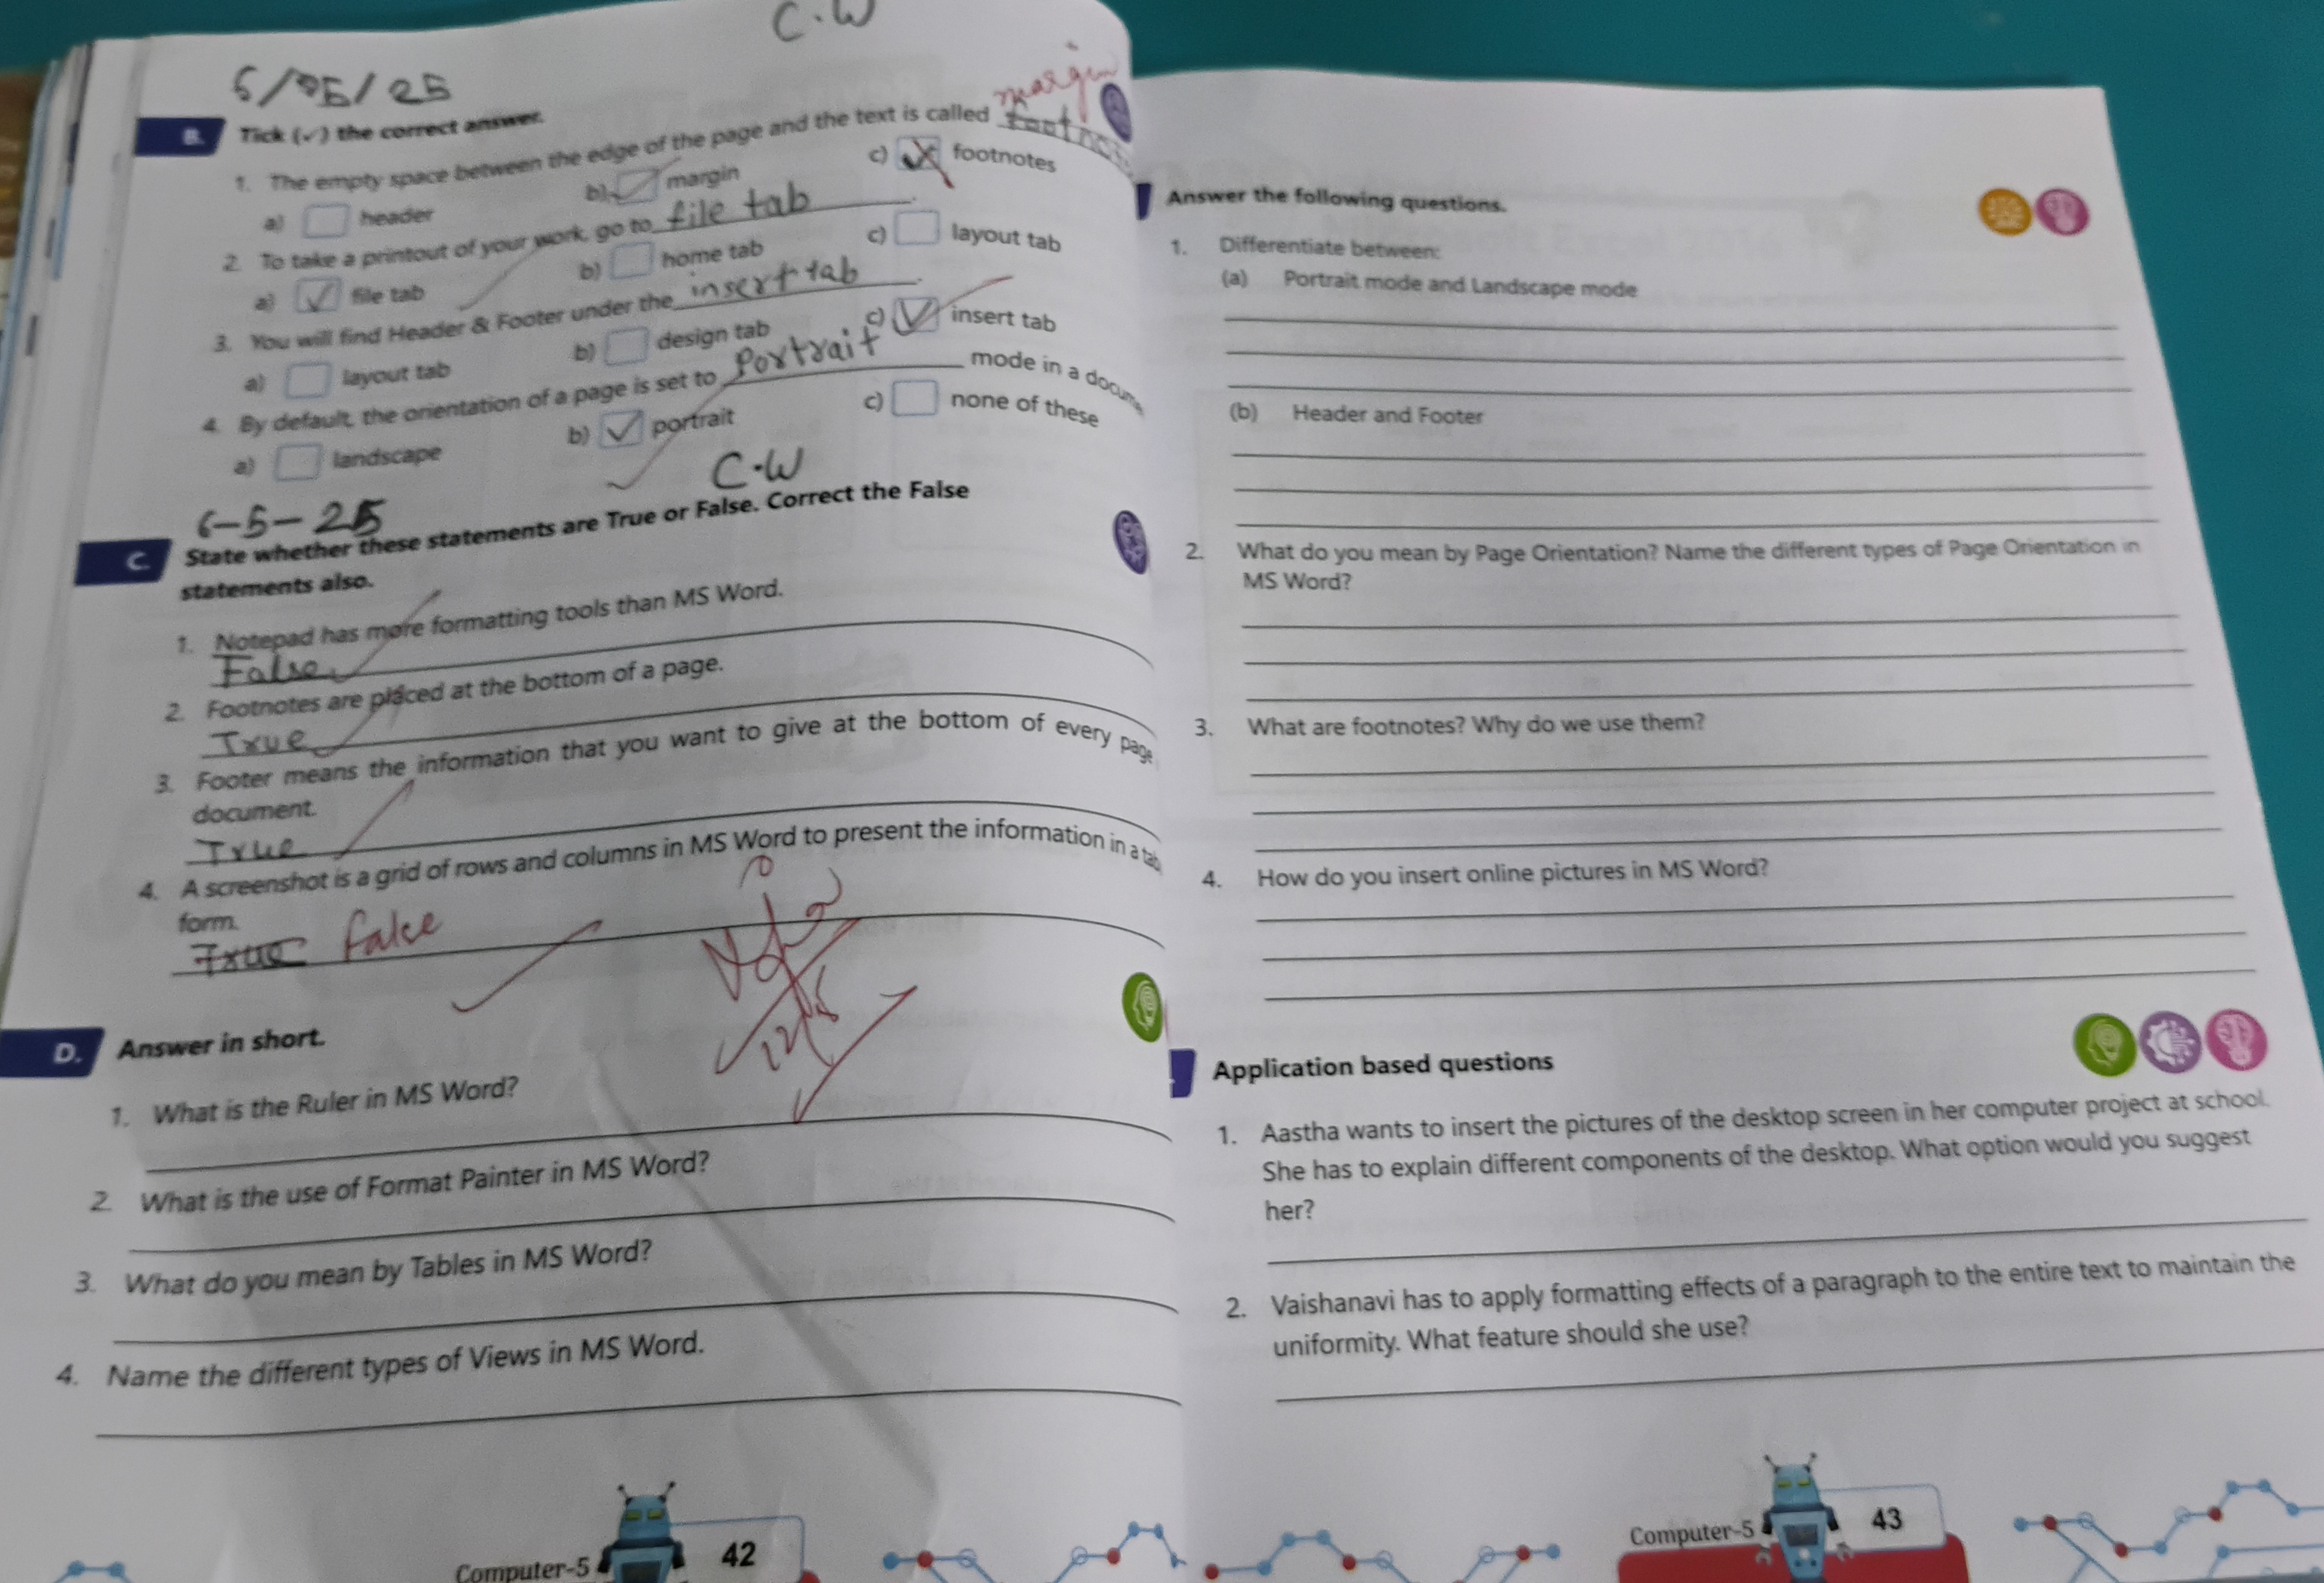 C.W
6/05/25
B. Tick (✓) the correct answer.
1. The empty space between the edge of the page and the text is called margin
a) header b) margin c) footnotes
2. To take a printout of your work, go to file tab.
a) file tab b) home tab c) layout tab
3. You will find Header & Footer under the insert tab.
a) layout tab b) design tab c) insert tab
4. By default, the orientation of a page is set to Portrait mode in a docume
a) landscape b) portrait c) none of these
C.W
6-5-25
C. State whether these statements are True or False. Correct the False
statements also.
1. Notepad has more formatting tools than MS Word.
False
2. Footnotes are placed at the bottom of a page.
True
3. Footer means the information that you want to give at the bottom of every page
document.
True
4. A screenshot is a grid of rows and columns in MS Word to present the information in a tab
form.
True False
12/5
D. Answer in short.
1. What is the Ruler in MS Word?
2. What is the use of Format Painter in MS Word?
3. What do you mean by Tables in MS Word?
4. Name the different types of Views in MS Word.
Computer-5 42
Answer the following questions.
1. Differentiate between:
(a) Portrait mode and Landscape mode
(b) Header and Footer
2. What do you mean by Page Orientation? Name the different types of Page Orientation in
MS Word?
3. What are footnotes? Why do we use them?
4. How do you insert online pictures in MS Word?
Application based questions
1. Aastha wants to insert the pictures of the desktop screen in her computer project at school.
She has to explain different components of the desktop. What option would you suggest
her?
2. Vaishanavi has to apply formatting effects of a paragraph to the entire text to maintain the
uniformity. What feature should she use?
Computer-5 43